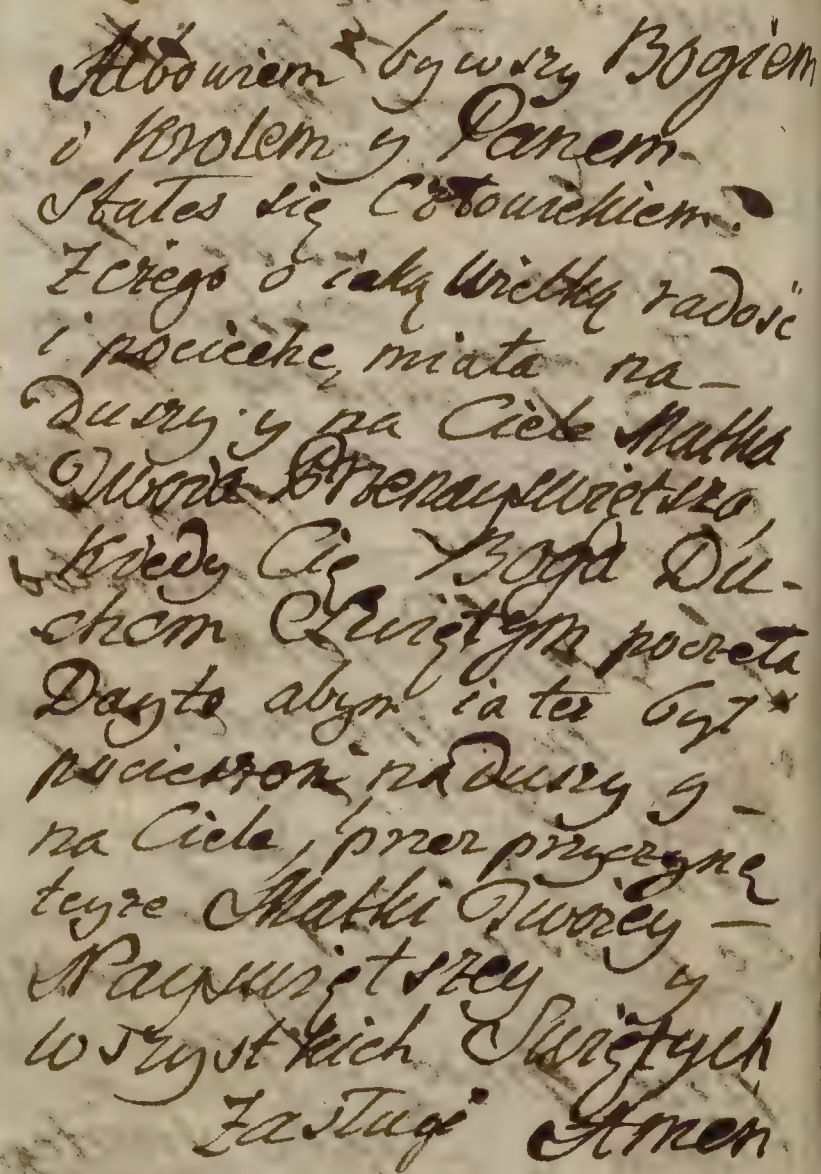 Albowiem bywszy Bogiem
i Krolem y Panem
stałes się Człowiekiem.
Z czego o iaką wielką radość
i pociechę miała na-
Duszy y na Ciele Matka
Twoia Przenayswiętsza,
kiedy Cię Boga Du-
chem Swiętym poczeła
Dayto abym ia tez był
pocieszoni na Duszy y -
na Ciele, przez przyczynę
teyze Matki Twoiey -
Nayswiętszey y
wszystkich Swiętych
Zasługi Amen